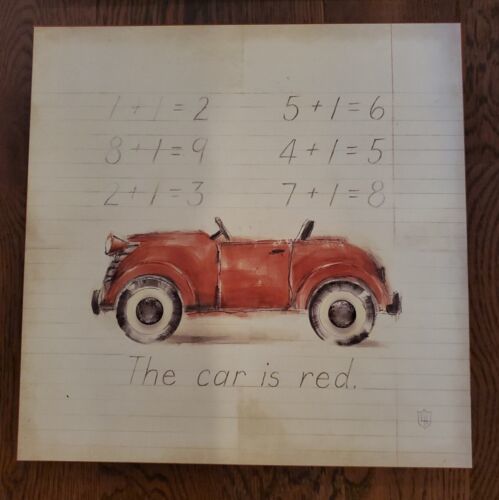 1+1=2 5+1=6
8+1=9 4+1=5
2+1=3 7+1=8
The car is red.